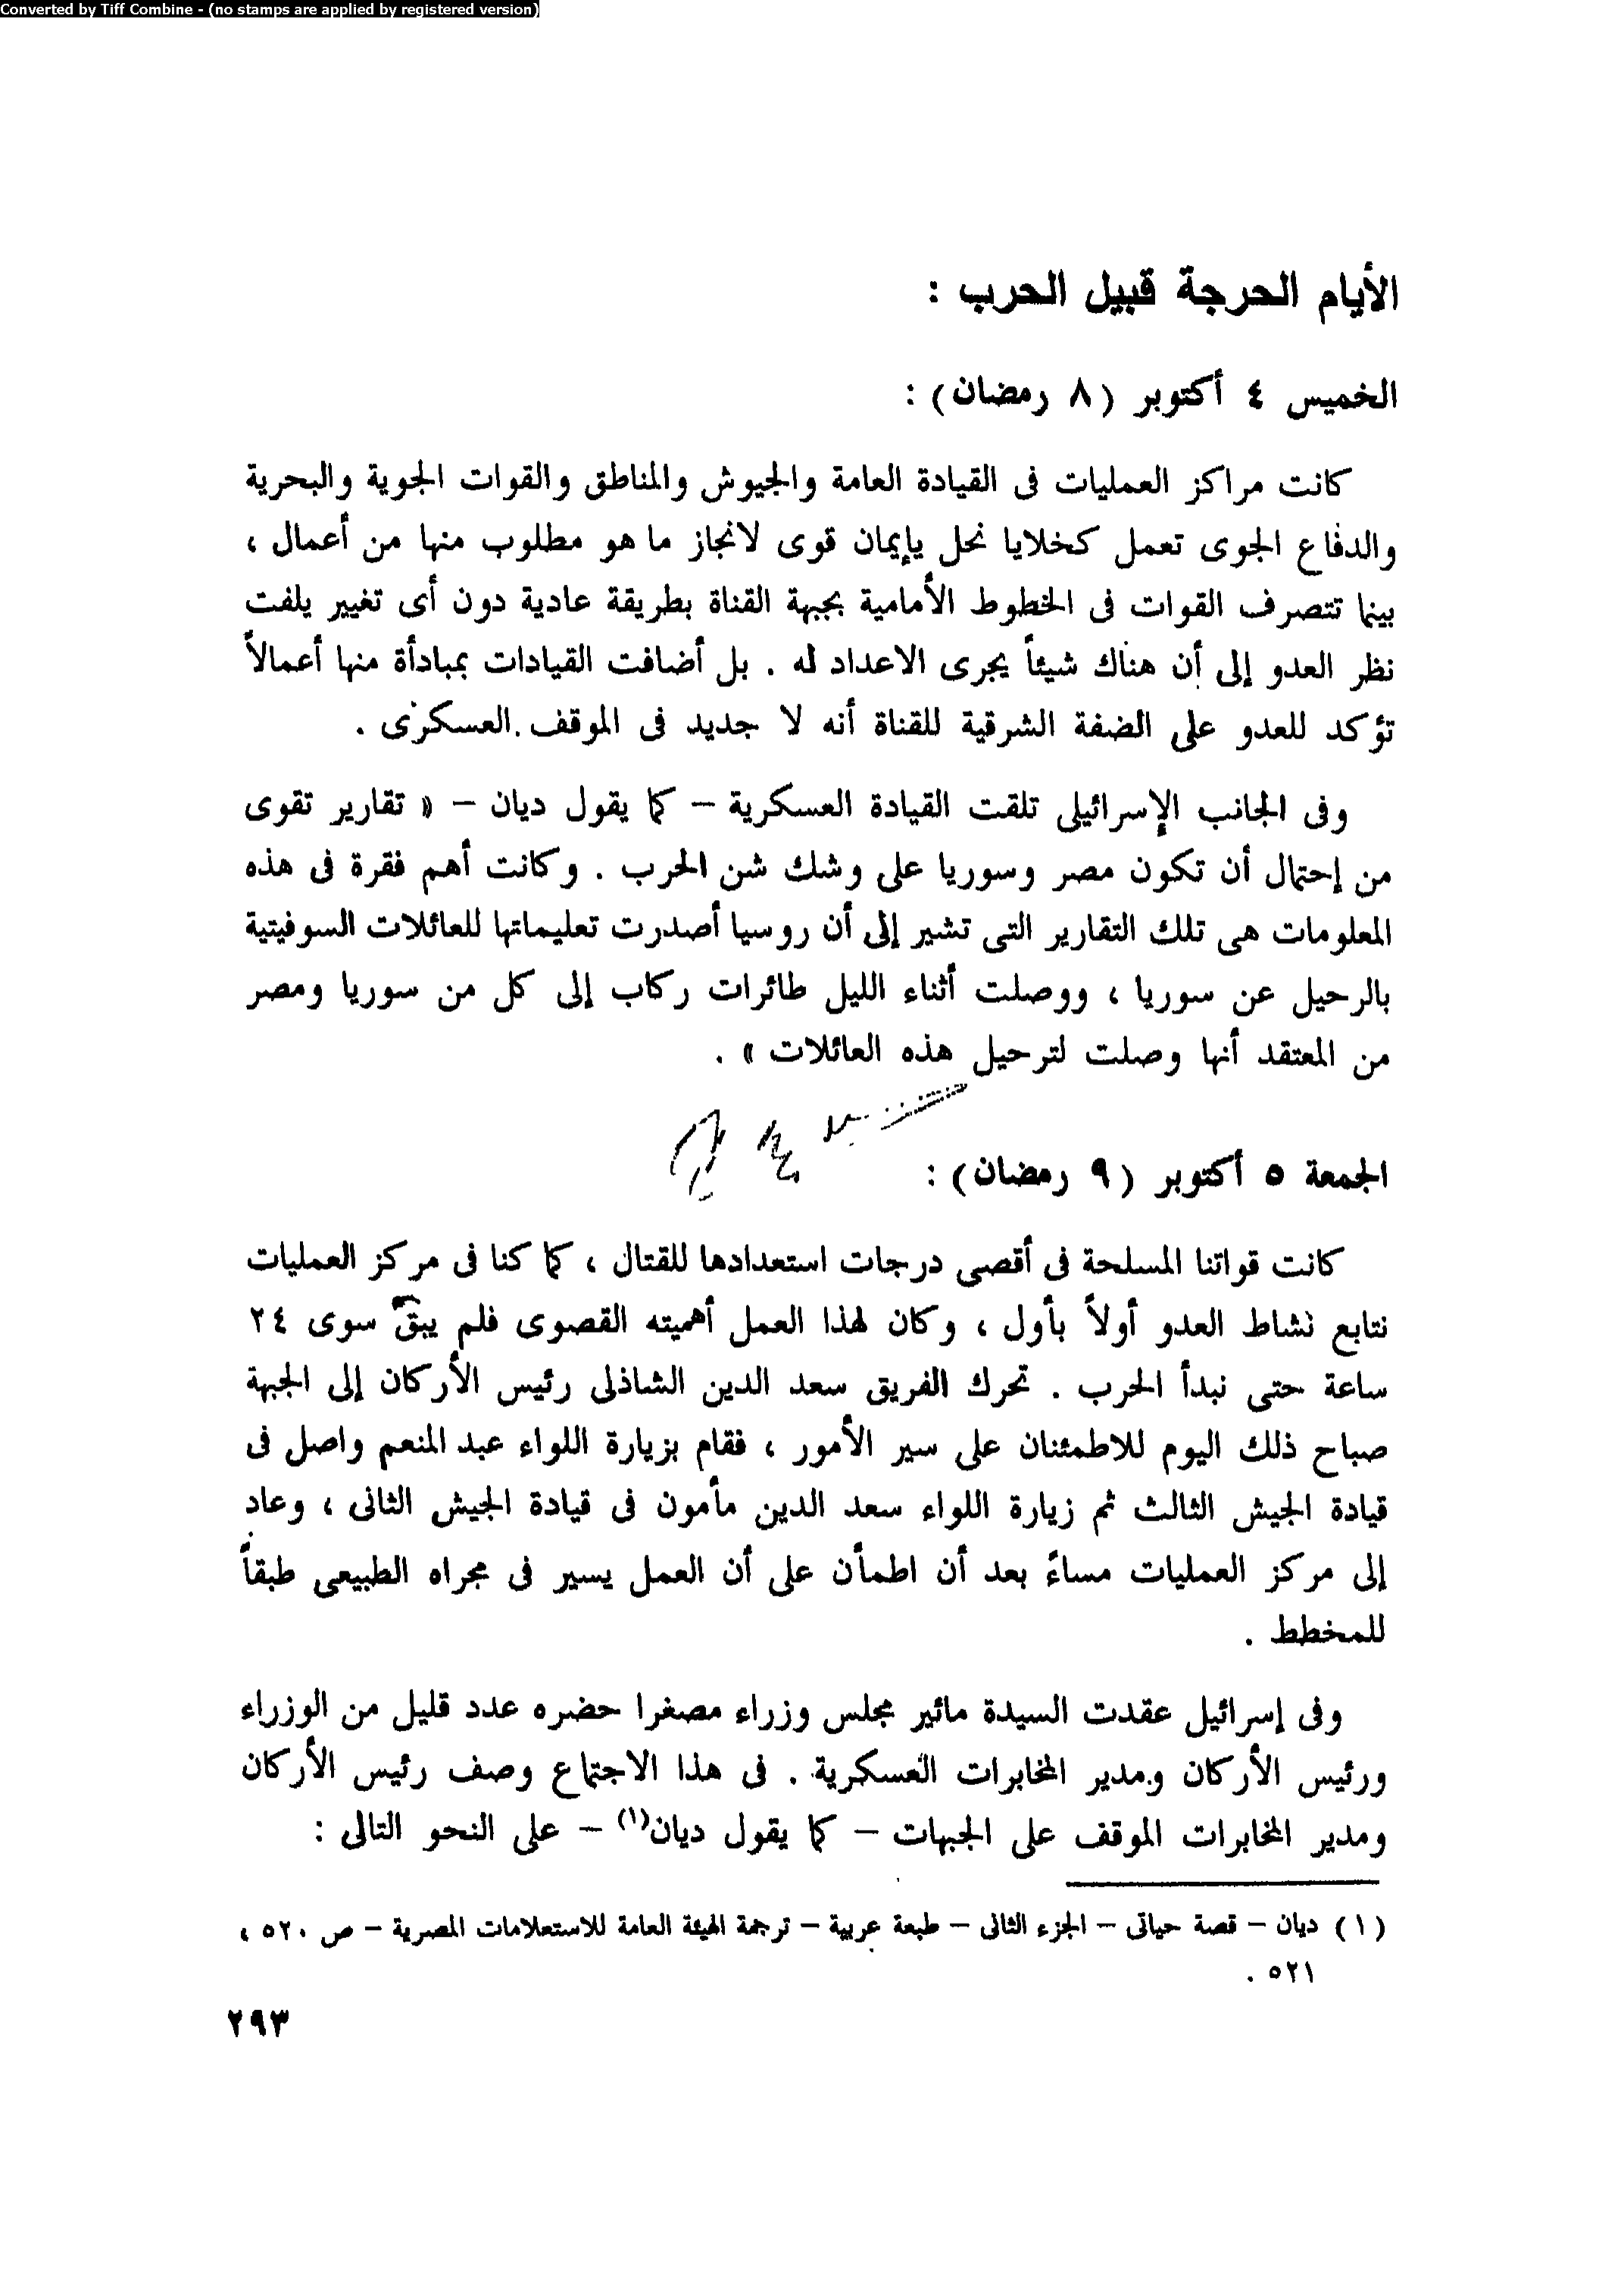 Converted by Tiff Combine - (no stamps are applied by registered version)
الأيام الحرجة قبيل الحرب :
الخميس ٤ أكتوبر (٨ رمضان) :
كانت مراكز العمليات فى القيادة العامة والجيوش والمناطق والقوات الجوية والبحرية
والدفاع الجوى تعمل كخلايا نحل بإيمان قوى لانجاز ما هو مطلوب منها من أعمال ،
بينما تتصرف القوات فى الخطوط الأمامية بجبهة القناة بطريقة عادية دون أى تغيير يلفت
نظر العدو إلى أن هناك شيئاً يجرى الاعداد له . بل أضافت القيادات بمبادأة منها أعمالاً
تؤكد للعدو على الضفة الشرقية للقناة أنه لا جديد فى الموقف العسكرى .
وفى الجانب الإسرائيلى تلقت القيادة العسكرية – كما يقول ديان – « تقارير تقوى
من إحتمال أن تكون مصر وسوريا على وشك شن الحرب . وكانت أهم فقرة فى هذه
المعلومات هى تلك التقارير التى تشير إلى أن روسيا أصدرت تعليماتها للعائلات السوفيتية
بالرحيل عن سوريا ، ووصلت أثناء الليل طائرات ركاب إلى كل من سوريا ومصر
من المعتقد أنها وصلت لترحيل هذه العائلات » .
الجمعة ٥ أكتوبر (٩ رمضان) :
كانت قواتنا المسلحة فى أقصى درجات استعدادها للقتال ، كما كنا فى مركز العمليات
نتابع نشاط العدو أولاً بأول ، وكان لهذا العمل أهميته القصوى فلم يبق سوى ٢٤
ساعة حتى نبدأ الحرب . تحرك الفريق سعد الدين الشاذلى رئيس الأركان إلى الجبهة
صباح ذلك اليوم للاطمئنان على سير الأمور ، فقام بزيارة اللواء عبد المنعم واصل فى
قيادة الجيش الثالث ثم زيارة اللواء سعد الدين مأمون فى قيادة الجيش الثانى ، وعاد
إلى مركز العمليات مساءً بعد أن اطمأن على أن العمل يسير فى مجراه الطبيعى طبقاً
للمخطط .
وفى إسرائيل عقدت السيدة مائير مجلس وزراء مصغرا حضره عدد قليل من الوزراء
ورئيس الأركان ومدير المخابرات العسكرية . فى هذا الاجتماع وصف رئيس الأركان
ومدير المخابرات الموقف على الجبهات – كما يقول ديان(١) – على النحو التالى :
(١) ديان – قصة حياتى – الجزء الثانى – طبعة عربية – ترجمة الهيئة العامة للاستعلامات المصرية – ص ٥٢٠ ،
٥٢١ .
٢٩٣